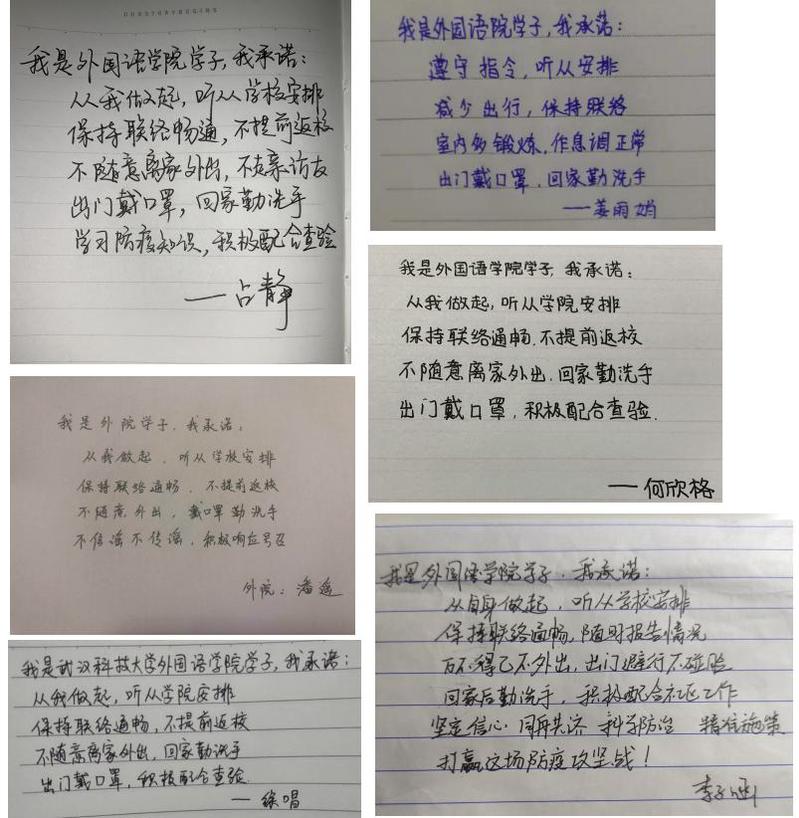 我是外国语学院学子，我承诺：
从我做起，听从学校安排
保持联络畅通，不提前返校
不随意离家外出，不走亲访友
出门戴口罩，回家勤洗手
学习防疫知识，积极配合查验
——占静
我是外国语院学子，我承诺：
遵守指令，听从安排
减少出行，保持联络
室内多锻炼，作息调正常
出门戴口罩，回家勤洗手
——姜雨娟
我是外国语学院学子，我承诺：
从我做起，听从学院安排
保持联络通畅，不提前返校
不随意离家外出，回家勤洗手
出门戴口罩，积极配合查验.
——何欣格
我是外院学子，我承诺：
从我做起，听从学校安排
保持联络通畅，不提前返校
不随意外出，戴口罩勤洗手
不信谣不传谣，积极响应号召
外院：潘遥
我是武汉科技大学外国语学院学子，我承诺：
从我做起，听从学院安排
保持联络通畅，不提前返校
不随意离家外出，回家勤洗手
出门戴口罩，积极配合查验
——徐唱
我是外国语学院学子，我承诺：
从自身做起，听从学校安排
保持联络通畅，随时报告情况
万不得已不外出，出门避行不碰脸
回家后勤洗手，积极配合社区工作
坚定信心 同舟共济 科学防治 精准施策
打赢这场防疫攻坚战！
李子涵